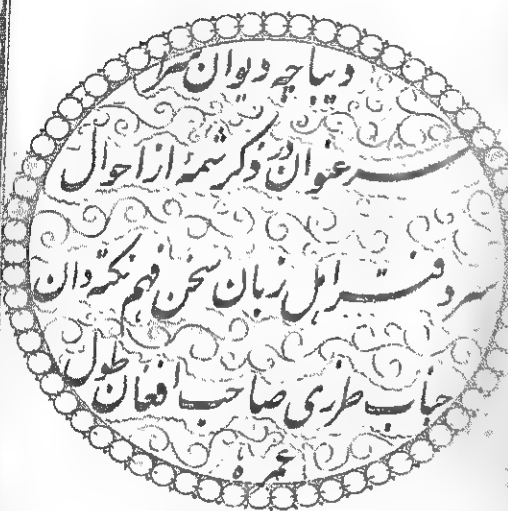 دیباچه دیوان
سر عنوان در ذکر شمهٔ از احوال
سر دفتر اهل زبان سخن فهم نکته دان
جناب طرزی صاحب افغان طول
عمره